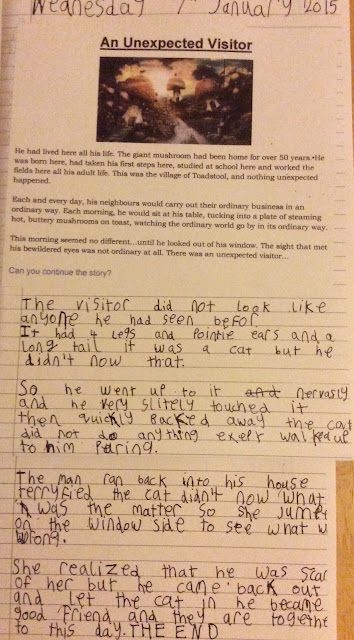 Wednesday 7th January 2015
An Unexpected Visitor
He had lived here all his life. The giant mushroom had been home for over 50 years. He
was born here, had taken his first steps here, studied at school here and worked the
fields here all his adult life. This was the village of Toadstool, and nothing unexpected
happened.
Each and every day, his neighbours would carry out their ordinary business in an
ordinary way. Each morning, he would sit at his table, tucking into a plate of steaming
hot, buttery mushrooms on toast, watching the ordinary world go by in its ordinary way.
This morning seemed no different...until he looked out of his window. The sight that met
his bewildered eyes was not ordinary at all. There was an unexpected visitor...
Can you continue the story?
The visitor did not look like
anyone he had seen befor
It had 4 legs and pointie ears and a
long tail it was a cat but he
didn't now that.
So he went up to it and nervasly
and he very slitely touched it
then quickly backed away the cat
did not do anything exept walked up
to him puring.
The man ran back into his house
terryfied the cat didn't now what
was the matter so she jumped
on the window side to see what w
wrong.
She realized that he was scar
of her but he came back out
and let the cat in he became
good friend and they are togethe
to this day. THE END